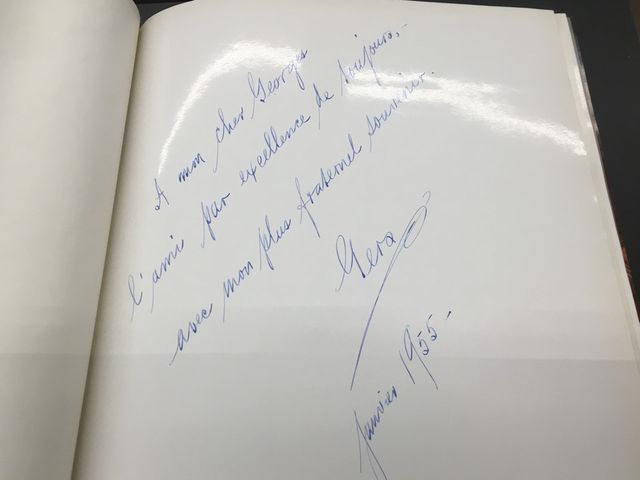 A mon cher Georges
l'ami par excellence de toujours,-
avec mon plus fraternel souvenir.
Gera
Janvier 1955-